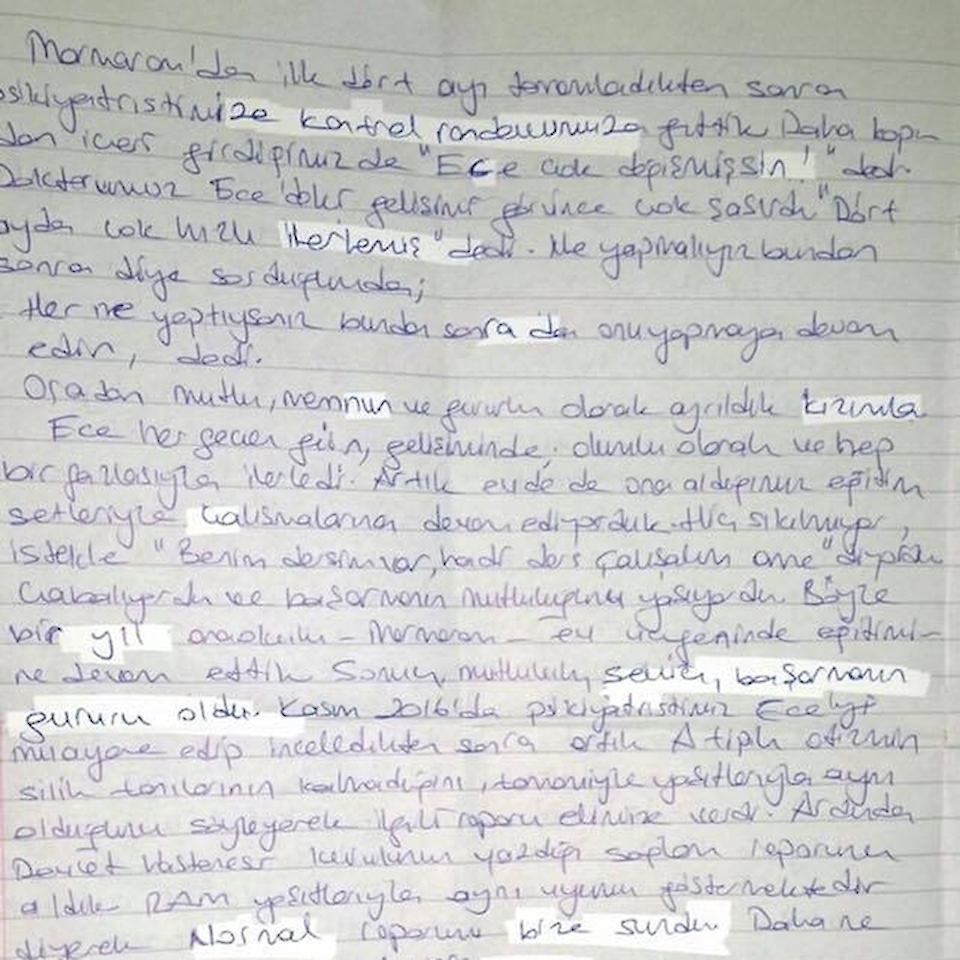 Marmaram'dan ilk dört ayı tamamladıktan sonra
psikiyatristimize kontrol randevumuza gittik Daha kapı-
dan içeri girdiğimizde "Ece çok değişmişsin!" dedi.
Doktorumuz Ece'deki gelişimi görünce çok şaşırdı "Dört
ayda çok hızlı ilerlemiş" dedi. Ne yapmalıyız bundan
sonra diye sorduğumda;
Her ne yaptıysanız bundan sonra da onu yapmaya devam
edin, dedi.
Oradan mutlu, memnun ve gururlu olarak ayrıldık kızımla.
Ece her geçen gün, gelişiminde, olumlu olarak ve hep
bir fazlasıyla ilerledi. Artık evde de ona aldığımız eğitim
setleriyle çalışmalarına devam ediyorduk. Hiç sıkılmıyor,
istekle "Benim dersim var, hadi ders çalışalım anne" diyordu
Çabalıyordu ve başarmanın mutluluğunu yaşıyordu. Böyle
bir yıl anaokulu - Marmaram - ev üçgeninde eğitimi-
ne devam ettik Sonuç, mutluluk, sevinç, başarmanın
gururu oldu. Kasım 2016'da psikiyatristimiz Ece'yi
muayene edip inceledikten sonra artık Atipik otizmin
silik tanılarının kalmadığını, tamamiyle yaşıtlarıyla aynı
olduğunu söyleyerek ilgili raporu elimize verdi. Ardından
Devlet Hastanesi kurulunun yazdığı sağlam raporunu
aldık RAM yaşıtlarıyla aynı uyumu göstermektedir
diyerek Normal raporunu bize sundu Daha ne